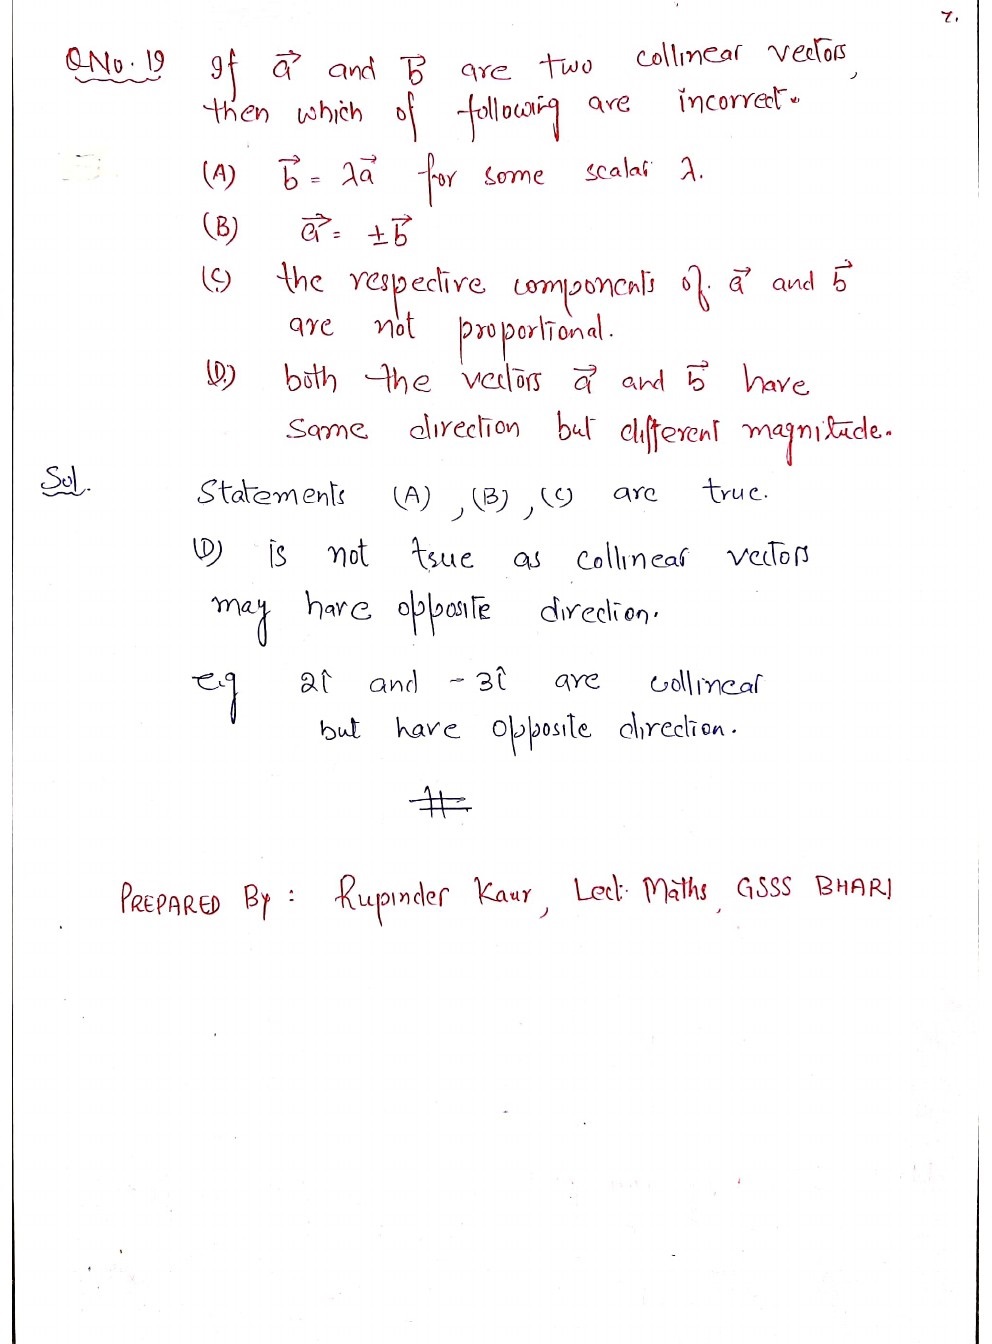 7.
QNo. 19 If a⃗ and b⃗ are two collinear vectors,
then which of following are incorrect.
(A) b⃗ = λa⃗ for some scalar λ.
(B) a⃗ = ±b⃗
(C) the respective components of a⃗ and b⃗
are not proportional.
(D) both the vectors a⃗ and b⃗ have
same direction but different magnitude.
Sol. Statements (A), (B), (C) are true.
(D) is not true as collinear vectors
may have opposite direction.
e.g 2î and -3î are collinear
but have opposite direction.
PREPARED By : Rupinder Kaur, Lect. Maths, GSSS BHARI